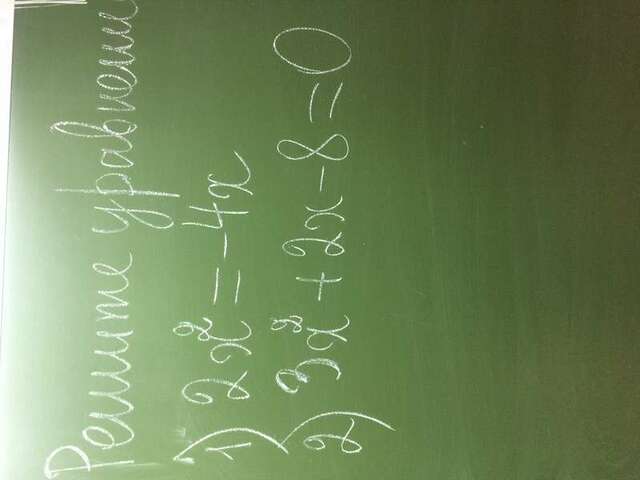 Решите уравнени
1) 2x² = -4x
2) 3x² + 2x - 8 = 0